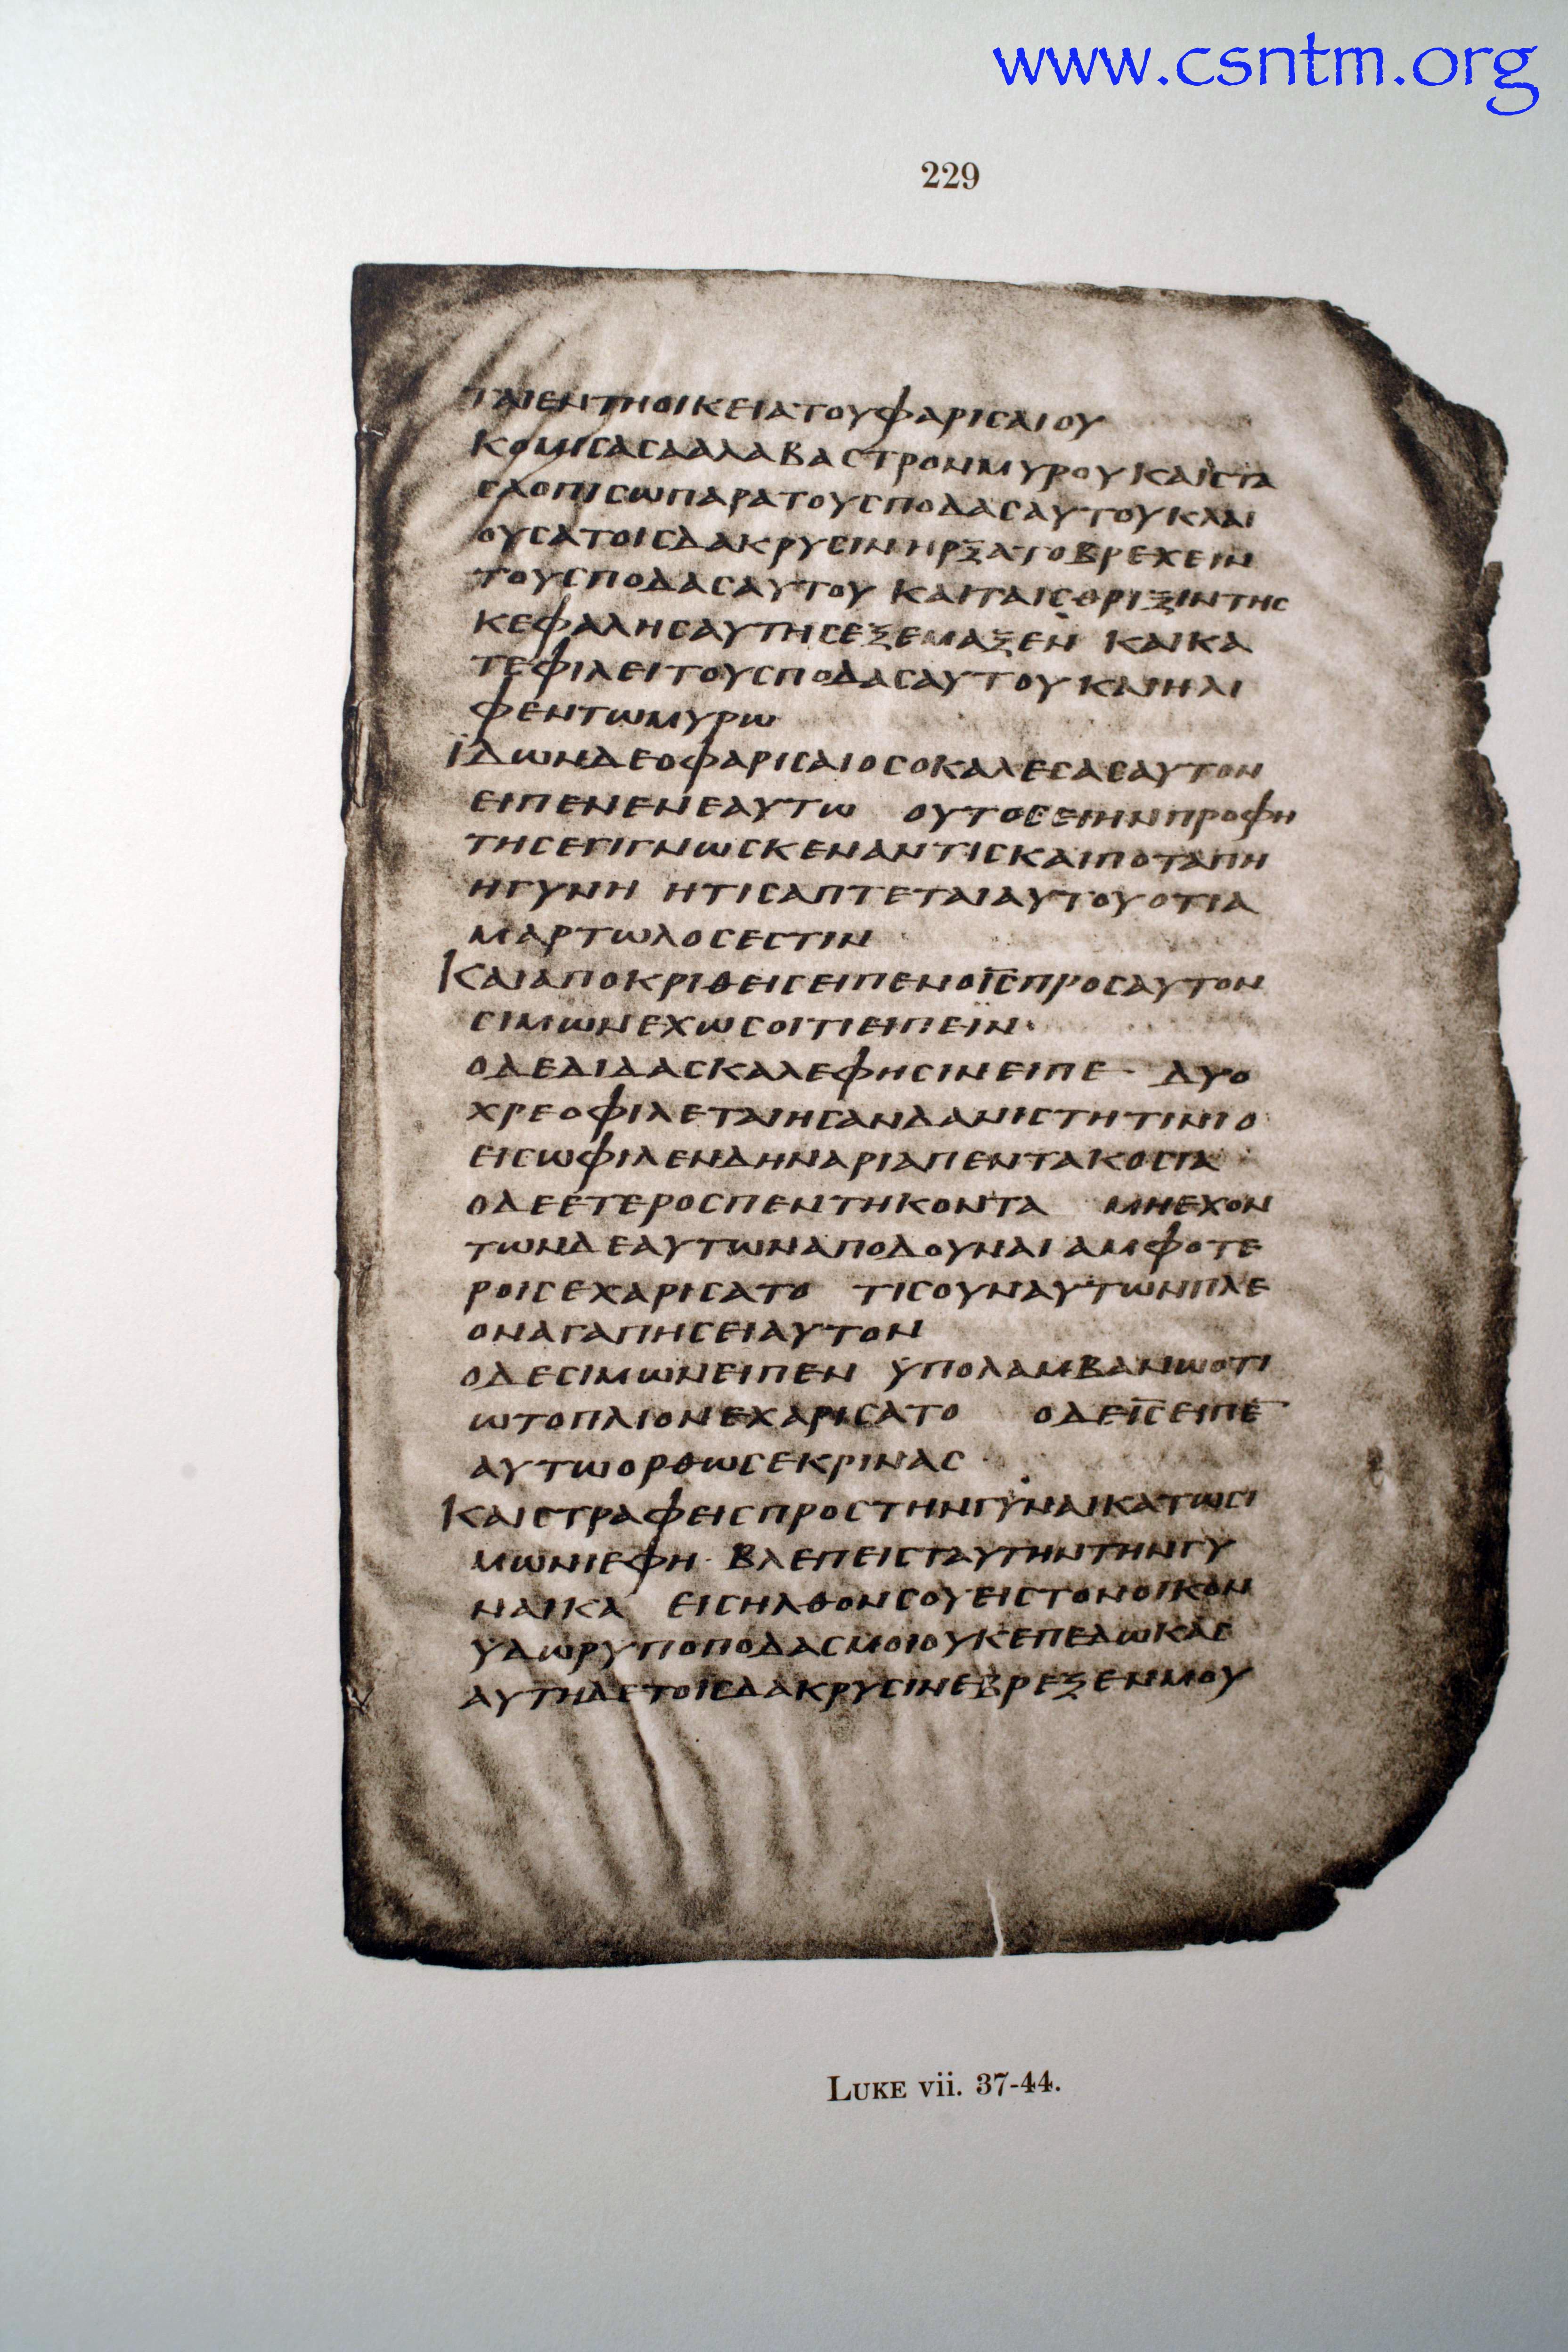 www.csntm.org
229
ΤΑΙΕΝΤΗΟΙΚΕΙΑΤΟΥΦΑΡΙCΑΙΟΥ
ΚΟΜΙCΑCΑΑΛΑΒΑCΤΡΟΝΜΥΡΟΥΚΑΙCΤΑ
CΑΟΠΙCΩΠΑΡΑΤΟΥCΠΟΔΑCΑΥΤΟΥΚΛΑΙ
ΟΥCΑΤΟΙCΔΑΚΡΥCΙΝΗΡΞΑΤΟΒΡΕΧΕΙΝ
ΤΟΥCΠΟΔΑCΑΥΤΟΥ ΚΑΙΤΑΙCΘΡΙΞΙΝΤΗC
ΚΕΦΑΛΗCΑΥΤΗCΕΞΕΜΑΞΕΝ ΚΑΙΚΑ
ΤΕΦΙΛΕΙΤΟΥCΠΟΔΑCΑΥΤΟΥΚΑΙΗΛΙ
ΦΕΝΤΩΜΥΡΩ
ΪΔΩΝΔΕΟΦΑΡΙCΑΙΟCΟΚΑΛΕCΑCΑΥΤΟΝ
ΕΙΠΕΝΕΝΕΑΥΤΩ ΟΥΤΟCΕΙΗΝΠΡΟΦΗ
ΤΗCΕΓΙΓΝΩCΚΕΝΑΝΤΙCΚΑΙΠΟΤΑΠΗ
ΗΓΥΝΗ ΗΤΙCΑΠΤΕΤΑΙΑΥΤΟΥΟΤΙΑ
ΜΑΡΤΩΛΟCΕCΤΙΝ
ΚΑΙΑΠΟΚΡΙΘΕΙCΕΙΠΕΝΟΙ̅C̅ΠΡΟCΑΥΤΟΝ
CΙΜΩΝΕΧΩCΟΙΤΙΕΙΠΕΙΝ
ΟΔΕΔΙΔΑCΚΑΛΕΦΗCΙΝΕΙΠΕ ΔΥΟ
ΧΡΕΟΦΙΛΕΤΑΙΗCΑΝΔΑΝΙCΤΗΤΙΝΙΟ
ΕΙCΩΦΙΛΕΝΔΗΝΑΡΙΑΠΕΝΤΑΚΟCΙΑ
ΟΔΕΕΤΕΡΟCΠΕΝΤΗΚΟΝΤΑ ΜΗΕΧΟΝ
ΤΩΝΔΕΑΥΤΩΝΑΠΟΔΟΥΝΑΙΑΜΦΟΤΕ
ΡΟΙCΕΧΑΡΙCΑΤΟ ΤΙCΟΥΝΑΥΤΩΝΠΛΕ
ΟΝΑΓΑΠΗCΕΙΑΥΤΟΝ
ΟΔΕCΙΜΩΝΕΙΠΕΝ ΫΠΟΛΑΜΒΑΝΩΟΤΙ
ΩΤΟΠΛΙΟΝΕΧΑΡΙCΑΤΟ ΟΔΕΙ̅C̅ΕΙΠΕ̅
ΑΥΤΩΟΡΘΩCΕΚΡΙΝΑC
ΚΑΙCΤΡΑΦΕΙCΠΡΟCΤΗΝΓΥΝΑΙΚΑΤΩCΙ
ΜΩΝΙΕΦΗ ΒΛΕΠΕΙCΤΑΥΤΗΝΤΗΝΓΥ
ΝΑΙΚΑ ΕΙCΗΛΘΟΝCΟΥΕΙCΤΟΝΟΙΚΟΝ
ΥΔΩΡΥΠΟΠΟΔΑCΜΟΙΟΥΚΕΠΕΔΩΚΑC
ΑΥΤΗΔΕΤΟΙCΔΑΚΡΥCΙΝΕΒΡΕΞΕΝΜΟΥ
LUKE vii. 37-44.